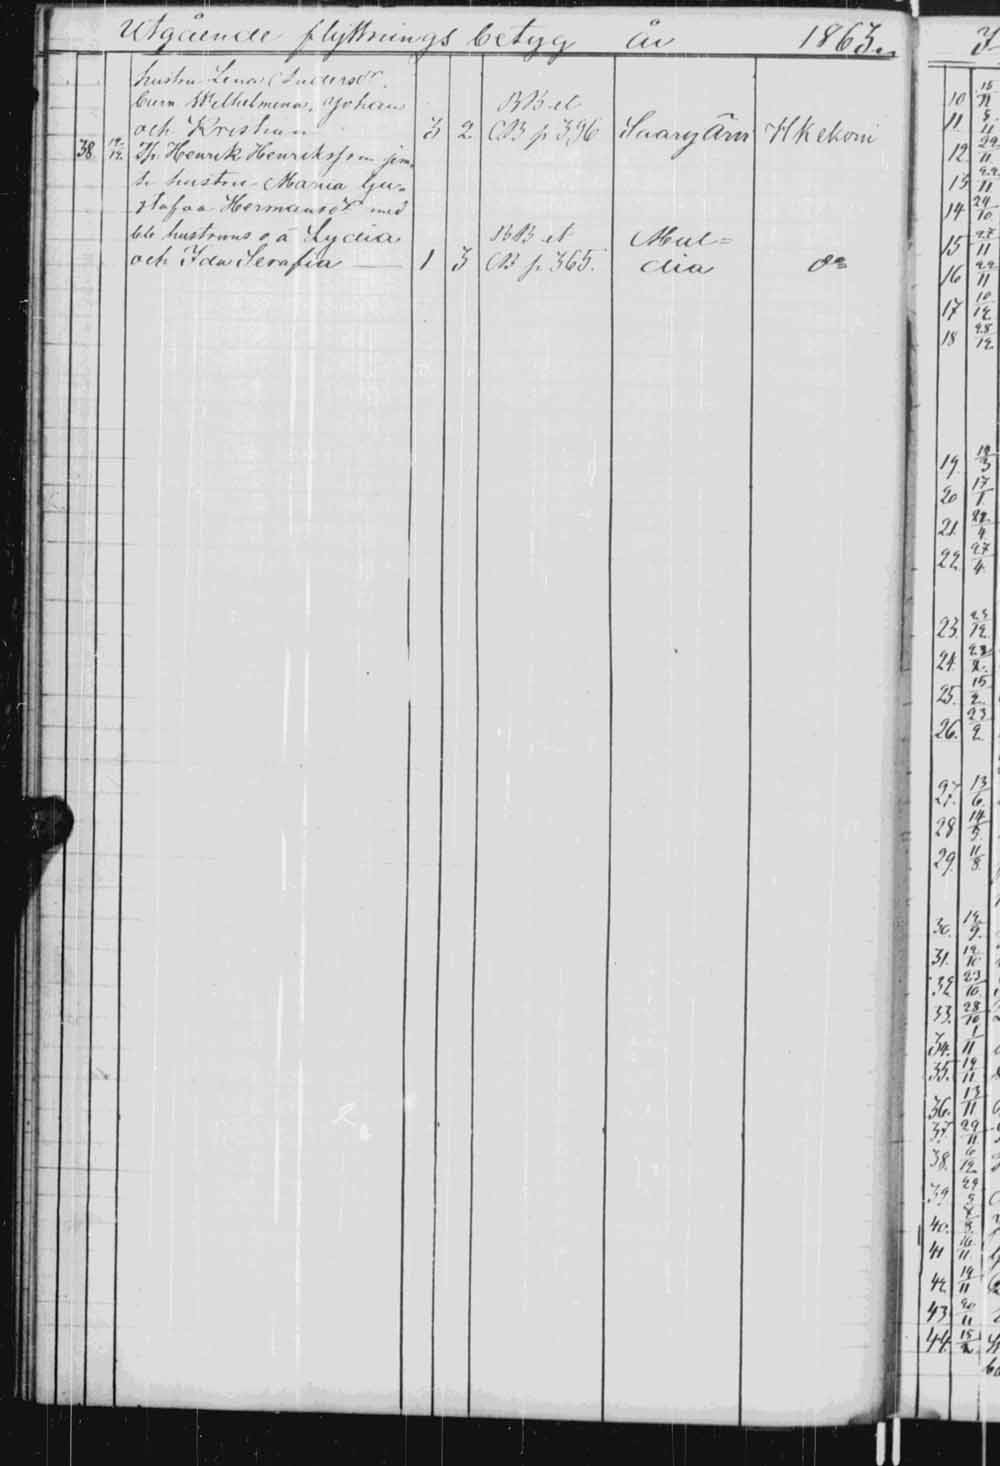 Utgående flyttnings betyg år 1863.
hustru Lena Andersdr.
barn Wilhelmina, Johan
och Kristian 3 2 BB et CB p 396 Saarijärvi H Kekoni
38 Henrik Henriksson jem-
te hustru Maria Gu-
stafva Hermansdr med
hustruns o ä Lydia
och Ida Serafia — 1 3 BB et CB p. 365. Mul=
dia do
10 15/11
11 8/11
12 29/11
13 22/11
14 24/10
15 27/11
16 22/11
17 10/12
18 28/12
19. 19/3
20 17/1
21. 28/4
22. 27/4
23. 23/12
24. 28/2
25. 15/2
26. 23/2
27. 13/6
28 14/5
29. 11/8
30. 12/9
31. 12/10
32 23/10
33. 28/10
34. 1/11
35. 12/11
36. 13/11
37. 29/11
38. 6/12
39 29/5
40. 8/8
41 16/11
42. 19/11
43. 20/11
44. 15/2